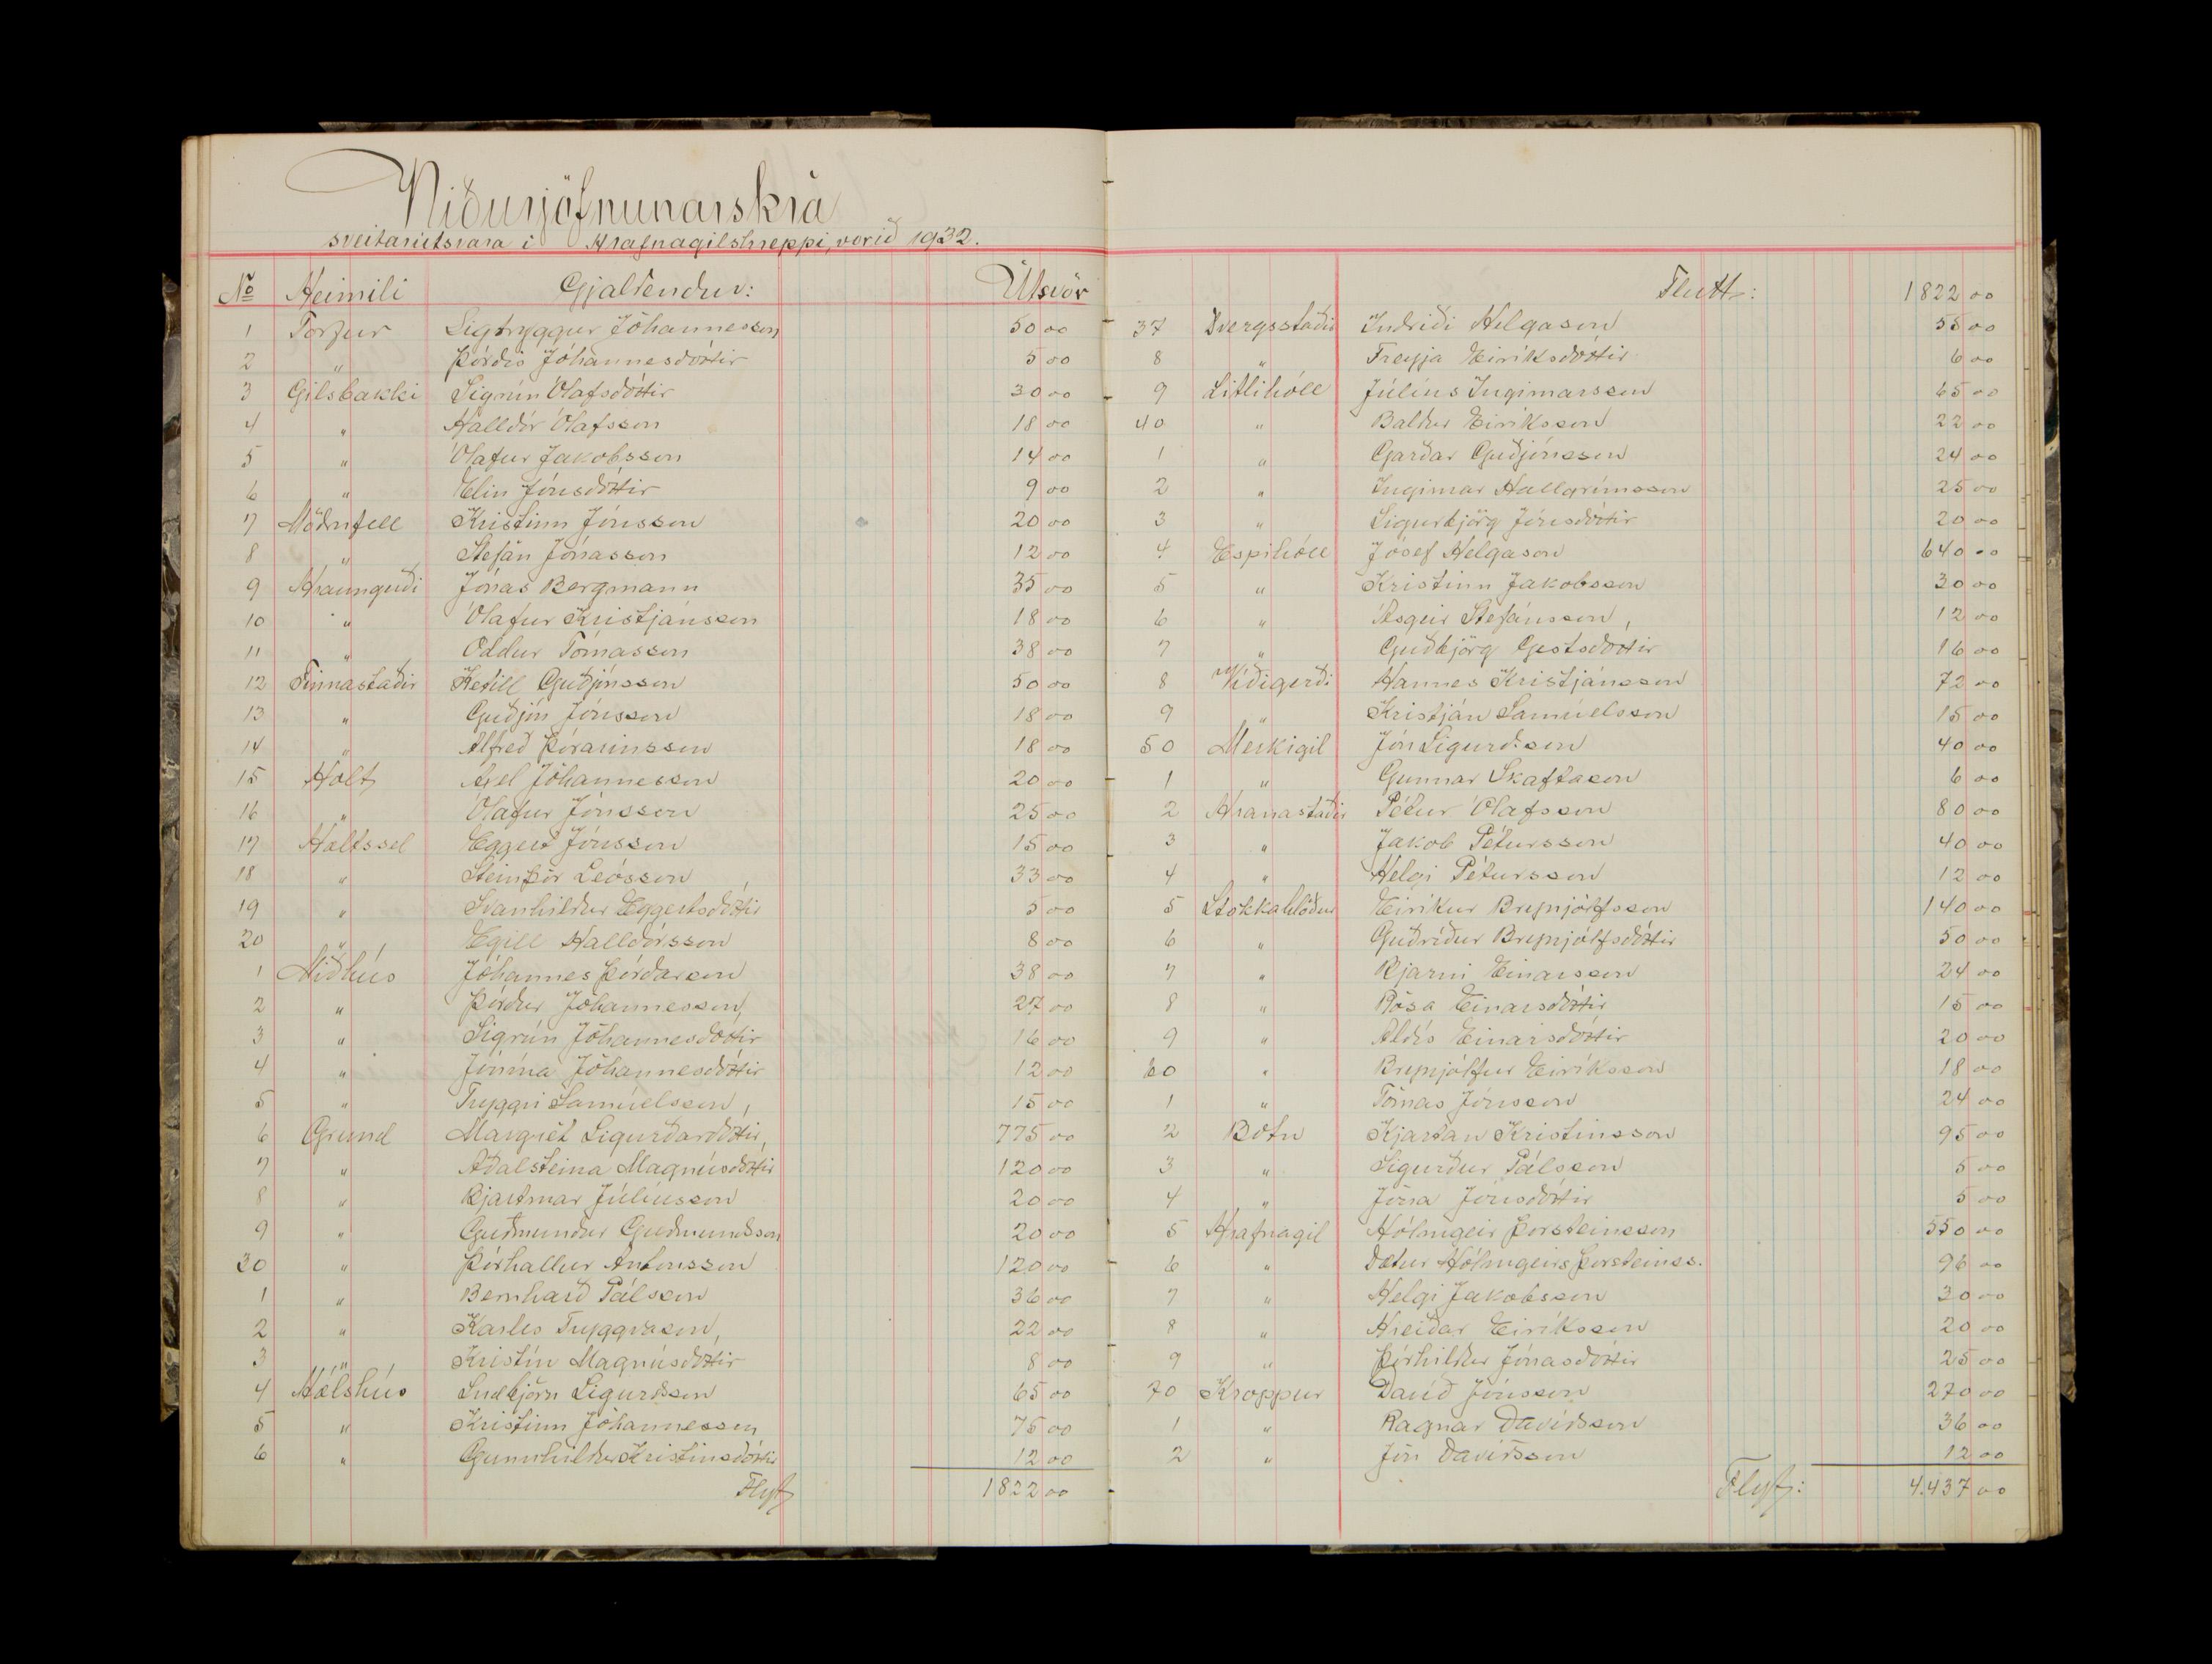 Niðurjöfnunarskrá
sveitarútsvara í Hrafnagilshreppi, vorið 1932.
No Heimili Gjaldendur: Útsvör
1 Torfur Sigtryggur Jóhannesson 50 00
2 " Þórdís Jóhannesdóttir 5 00
3 Gilsbakki Sigrún Ólafsdóttir 30 00
4 " Halldór Ólafsson 18 00
5 " Ólafur Jakobsson 14 00
6 " Elín Jónsdóttir 9 00
7 Möðrufell Kristinn Jónsson 20 00
8 " Stefán Jónasson 12 00
9 Hraungerði Jónas Bergmann 35 00
10 " Ólafur Kristjánsson 18 00
11 " Oddur Tómasson 38 00
12 Finnastaðir Ketill Guðjónsson 50 00
13 " Guðjón Jónsson 18 00
14 " Alfreð Þórarinsson 18 00
15 Holt Axel Jóhannesson 20 00
16 " Ólafur Jónsson 25 00
17 Holtssel Eggert Jónsson 15 00
18 " Steinþór Leósson 33 00
19 " Svanhildur Eggertsdóttir 5 00
20 " Egill Halldórsson 8 00
1 Miðhús Jóhannes Þórðarson 38 00
2 " Þórður Jóhannesson, 27 00
3 " Sigrún Jóhannesdóttir 16 00
4 " Jónína Jóhannesdóttir 12 00
5 " Tryggvi Samúelsson, 15 00
6 Grund Margrét Sigurðardóttir, 775 00
7 " Aðalsteina Magnúsdóttir 120 00
8 " Bjartmar Júlíusson 20 00
9 " Guðmundur Guðmundsson 20 00
30 " Þórhallur Antonsson 120 00
1 " Bernharð Pálsson 36 00
2 " Karles Tryggvason, 22 00
3 " Kristín Magnúsdóttir 8 00
4 Hólshús Snæbjörn Sigurðsson 65 00
5 " Kristinn Jóhannesson 75 00
6 " Gunnhildur Kristinsdóttir 12 00
Flyt 1822 00
Flutt: 1822 00
37 Dvergsstaðir Indriði Helgason 55 00
8 " Freyja Eiríksdóttir 6 00
9 Litlihóll Júlíus Ingimarsson 65 00
40 " Baldur Eiríksson 22 00
1 " Garðar Guðjónsson 24 00
2 " Ingimar Hallgrímsson 25 00
3 " Sigurbjörg Jónsdóttir 20 00
4 Espihóll Jósef Helgason 640 00
5 " Kristinn Jakobsson 30 00
6 " Ásgeir Stefánsson, 12 00
7 " Guðbjörg Gestsdóttir 16 00
8 Víðigerði Hannes Kristjánsson 72 00
9 " Kristján Samúelsson 15 00
50 Merkigil Jón Sigurðsson 40 00
1 " Gunnar Skaftason 6 00
2 Hranastaðir Pétur Ólafsson 80 00
3 " Jakob Pétursson 40 00
4 " Helgi Pétursson 12 00
5 Stokkahlöður Eiríkur Brynjólfsson 140 00
6 " Guðríður Brynjólfsdóttir 50 00
7 " Bjarni Einarsson 24 00
8 " Rósa Einarsdóttir 15 00
9 " Aldís Einarsdóttir 20 00
60 " Brynjólfur Eiríksson 18 00
1 " Tómas Jónsson 24 00
2 Botn Kjartan Kristinsson 95 00
3 " Sigurður Pálsson 5 00
4 " Jóna Jónsdóttir 5 00
5 Hrafnagil Hólmgeir Þorsteinsson 550 00
6 " Dætur Hólmgeirs Þorsteinss. 96 00
7 " Helgi Jakobsson 30 00
8 " Hreiðar Eiríksson 20 00
9 " Þórhildur Jónasdóttir 25 00
70 Kroppur Davíð Jónsson 270 00
1 " Ragnar Davíðsson 36 00
2 " Jón Davíðsson 12 00
Flyt: 4.437 00